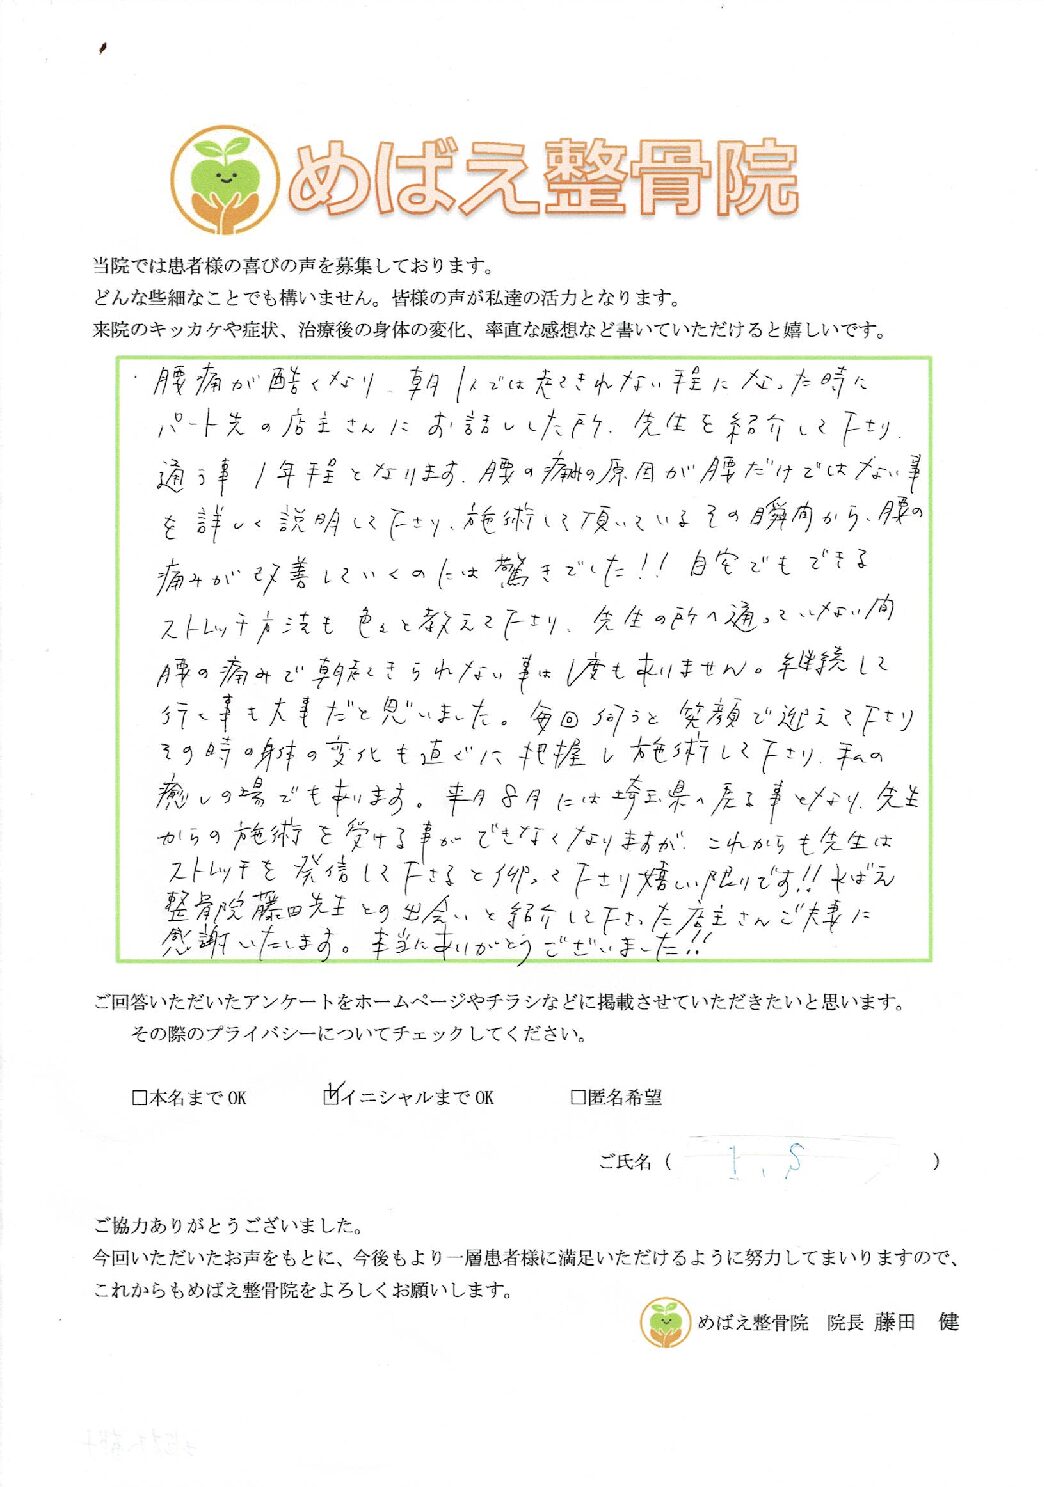 めばえ整骨院
当院では患者様の喜びの声を募集しております。
どんな些細なことでも構いません。皆様の声が私達の活力となります。
来院のキッカケや症状、治療後の身体の変化、率直な感想など書いていただけると嬉しいです。
・腰痛が酷くなり、朝1人では起ききれない程になった時に
パート先の店主さんにお話しした所、先生を紹介して下さり、
通う事1年程となります。腰の痛みの原因が腰だけではない事
を詳しく説明して下さり、施術して頂いているその瞬間から、腰の
痛みが改善していくのには驚きでした!! 自宅でもできる
ストレッチ方法も色々と教えて下さり、先生の所へ通っていない間
腰の痛みで朝起きられない事は1度もありません。継続して
行く事も大事だと思いました。毎回伺うと笑顔で迎えて下さり
その時の身体の変化も直ぐに把握し施術して下さり、私の
癒しの場でもあります。来月8月には埼玉県へ戻る事となり、先生
からの施術を受ける事ができなくなりますが、これからも先生は
ストレッチを発信して下さると仰って下さり嬉しい限りです!! めばえ
整骨院藤田先生との出会いと紹介して下さった店主さんご夫妻に
感謝いたします。本当にありがとうございました!!
ご回答いただいたアンケートをホームページやチラシなどに掲載させていただきたいと思います。
その際のプライバシーについてチェックしてください。
□本名までOK ☑イニシャルまでOK □匿名希望
ご氏名（ I.S ）
ご協力ありがとうございました。
今回いただいたお声をもとに、今後もより一層患者様に満足いただけるように努力してまいりますので、
これからもめばえ整骨院をよろしくお願いします。
めばえ整骨院 院長 藤田 健